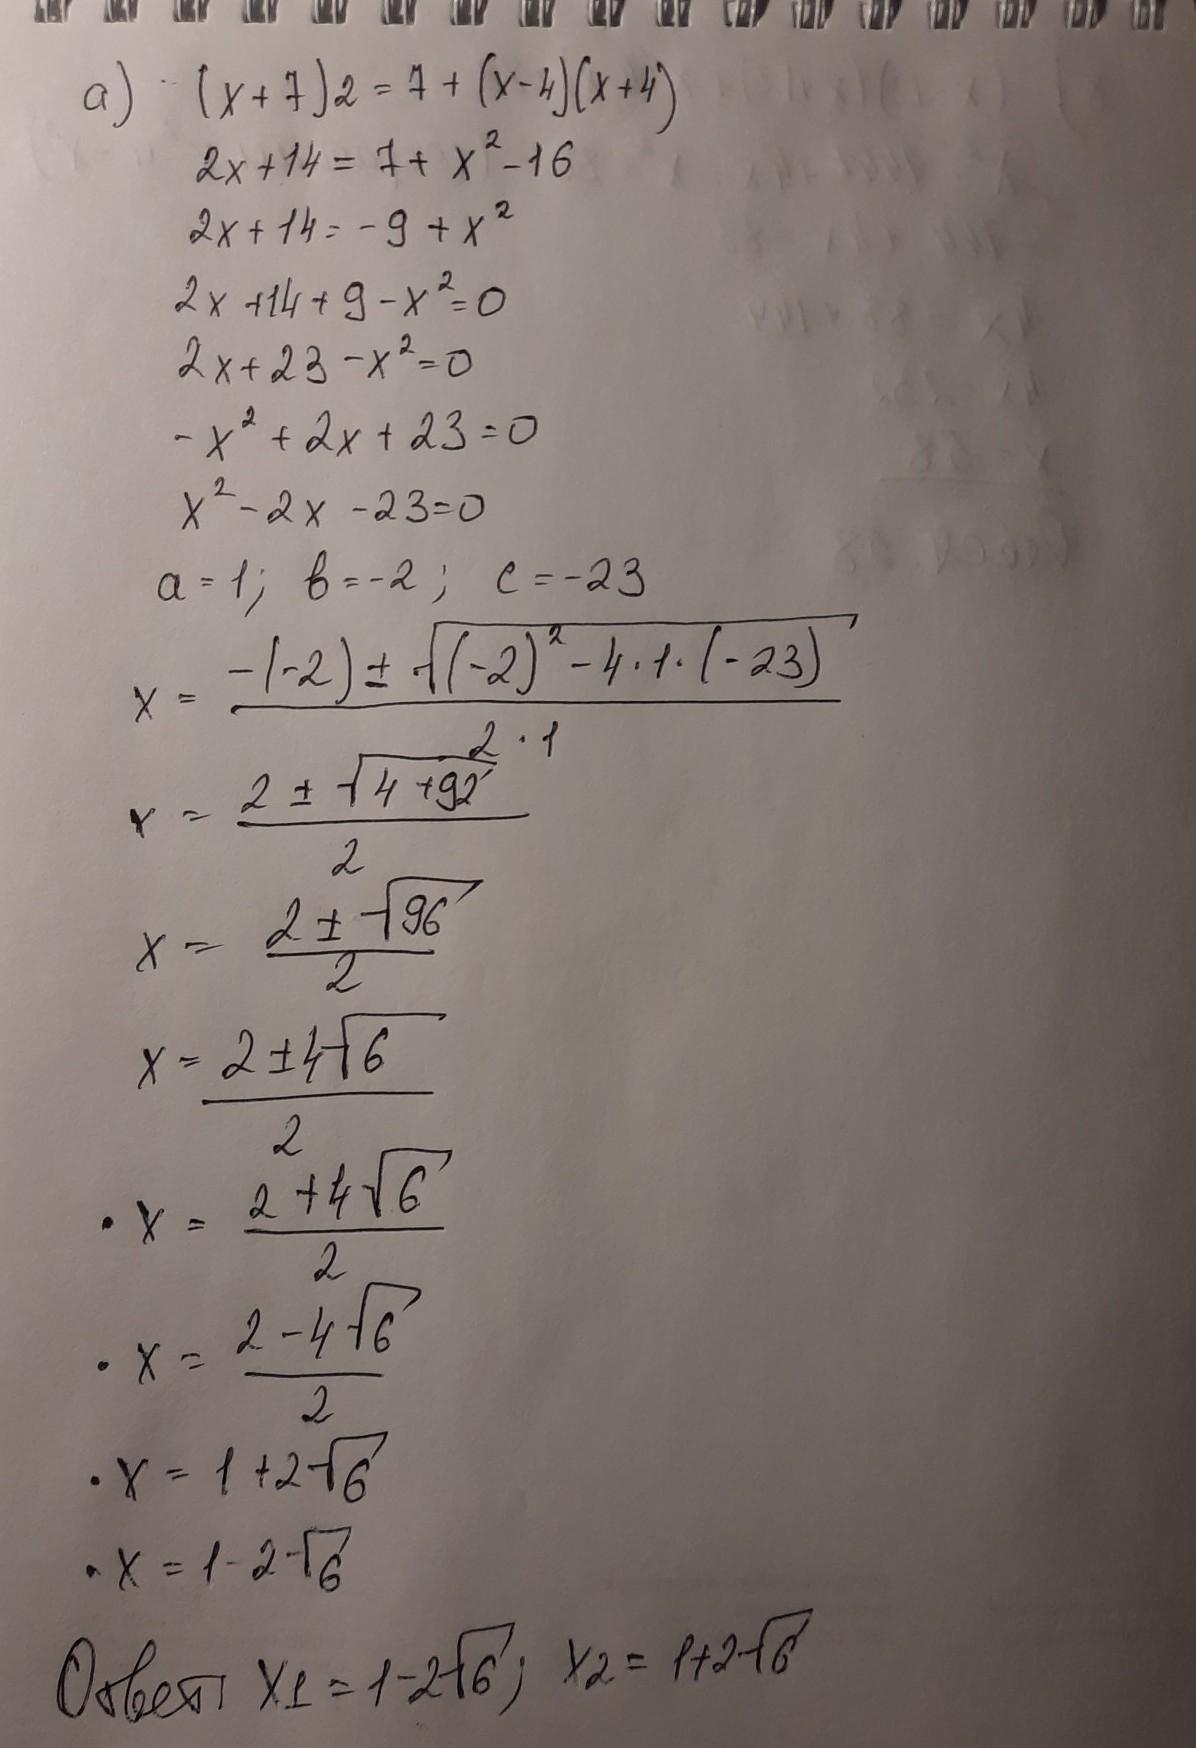 а) (x+7)2=7+(x-4)(x+4)
2x+14=7+x²-16
2x+14=-9+x²
2x+14+9-x²=0
2x+23-x²=0
-x²+2x+23=0
x²-2x-23=0
a=1; b=-2; c=-23
x = (-(-2)±√((-2)²-4·1·(-23)))/(2·1)
x = (2±√(4+92))/2
x = (2±√96)/2
x = (2±4√6)/2
· x = (2+4√6)/2
· x = (2-4√6)/2
· x = 1+2√6
· x = 1-2√6
Ответ: x1=1-2√6; x2=1+2√6